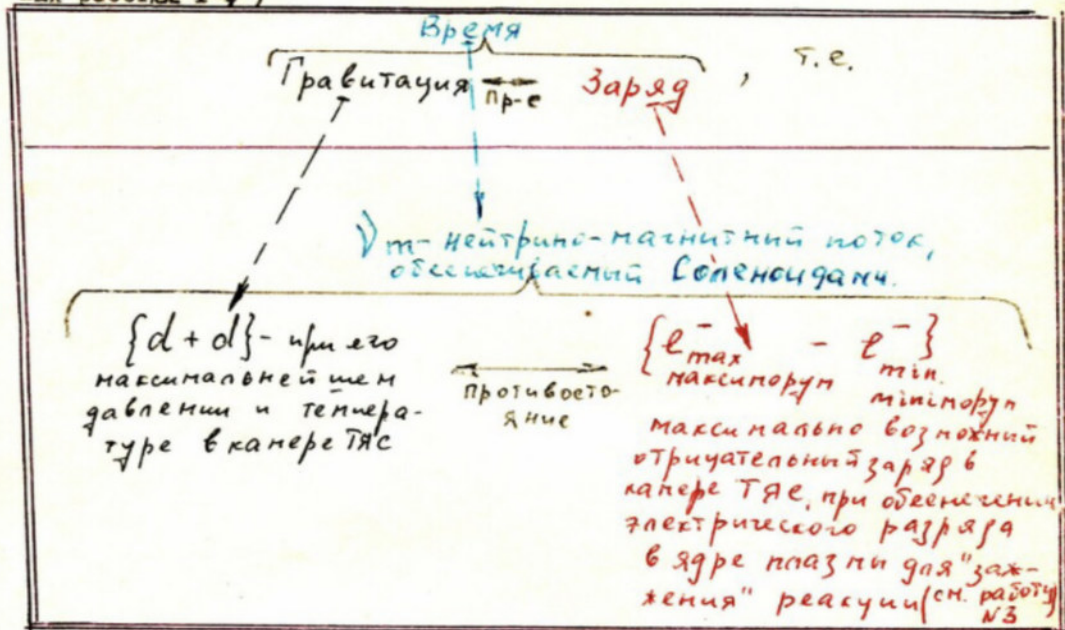 Время
Гравитация Пр-е Заряд , т.е.
νm- нейтрино-магнитный поток,
обеспечиваемый Соленоидами.
{d + d} - при его
максимальнейшем
давлении и темпера-
туре в камере ТЯС
противосто-
яние
{e⁻max - e⁻min.}
максиморум минморум
максимально возможный
отрицательный заряд в
камере ТЯС, при обеспечении
электрического разряда
в ядре плазмы для "заж-
жения" реакции (см. работу
N3